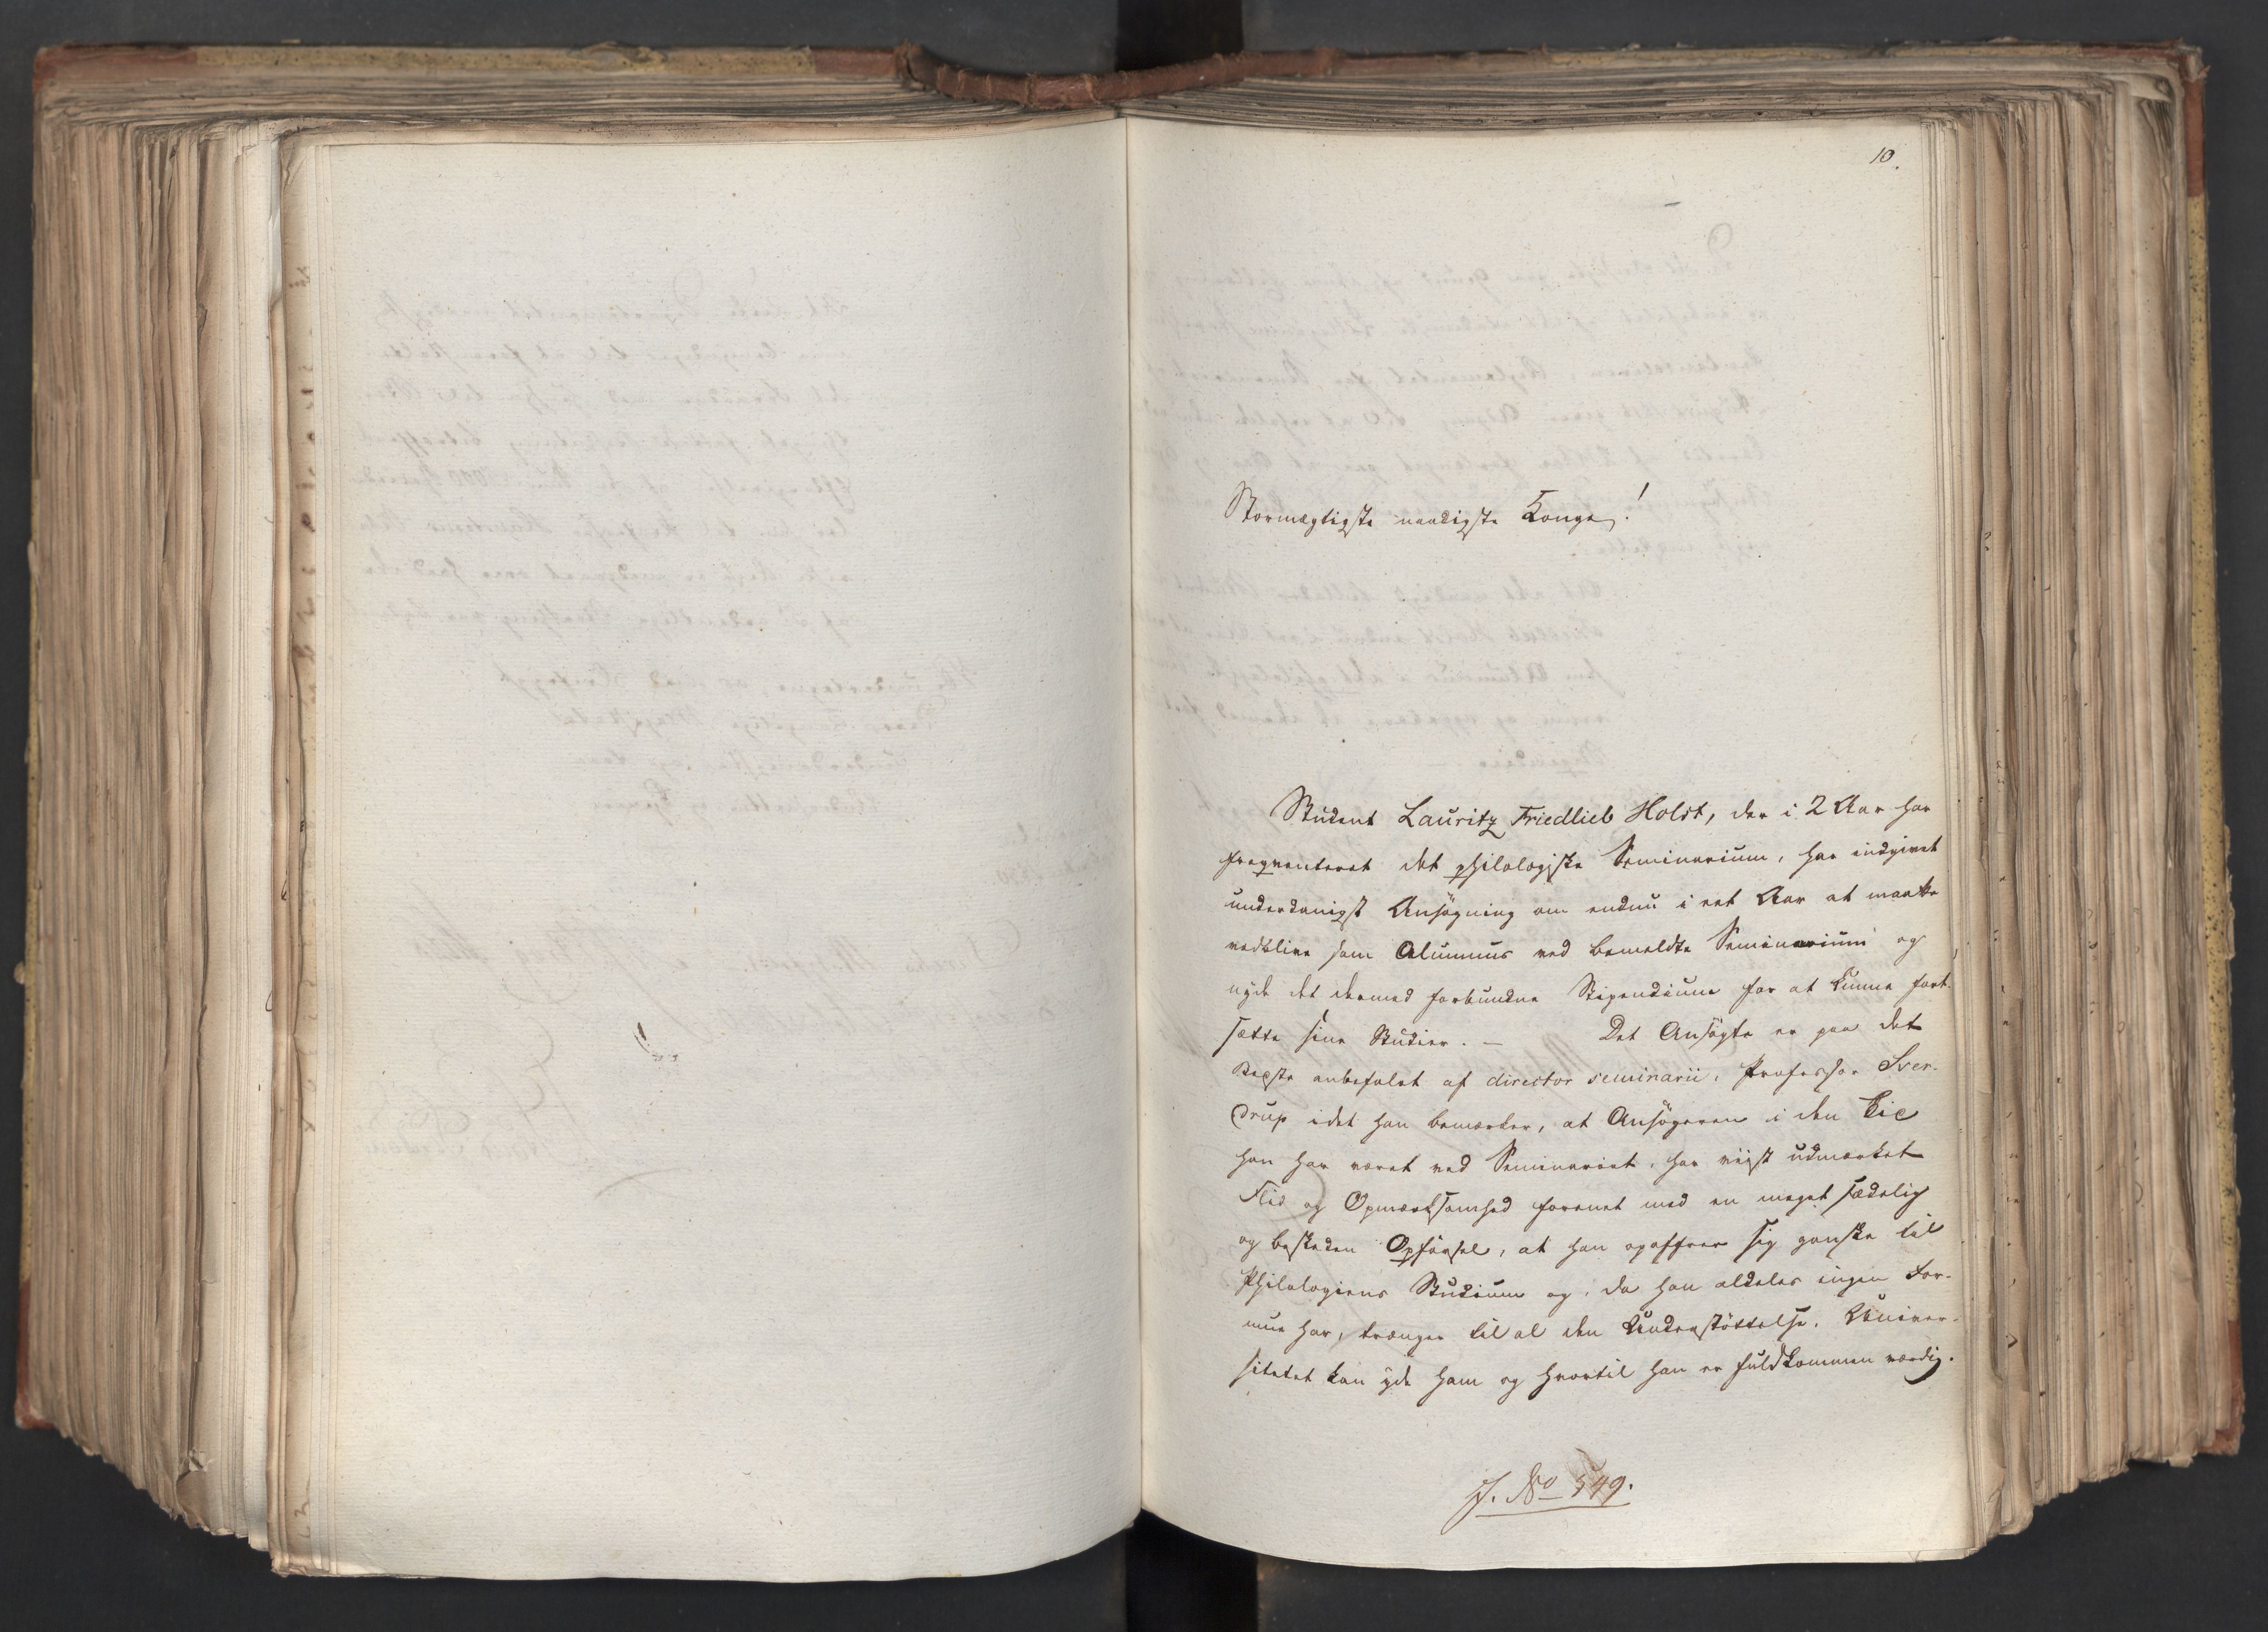 10.
Stormægtigste naadigste Konge!
Student Lauritz Friedlieb Holst, der i 2 Aar har
freqventeret det philologiske Seminarium, har indgivet
underdanigst Ansøgning om endnu i eet Aar at maatte
vedblive som Alumnus ved bemeldte Seminarium og
nyde det dermed forbundne Stipendium for at kunne fort-
sætte sine Studier. — Det Ansøgte er paa det
Bedste anbefalet af director seminarii, Professor Sver-
drup idet han bemærker, at Ansøgeren i den Tid
han har været ved Seminariet, har viist udmærket
Flid og Opmærksomhed forenet med en meget sædelig
og beskeden Opførsel, at han opoffrer sig ganske til
Philologiens Studium og, da han aldeles ingen For-
mue har, trænger til al den Understøttelse, Univer-
sitetet kan yde ham og hvortil han er fuldkommen værdig.
J. No 549.